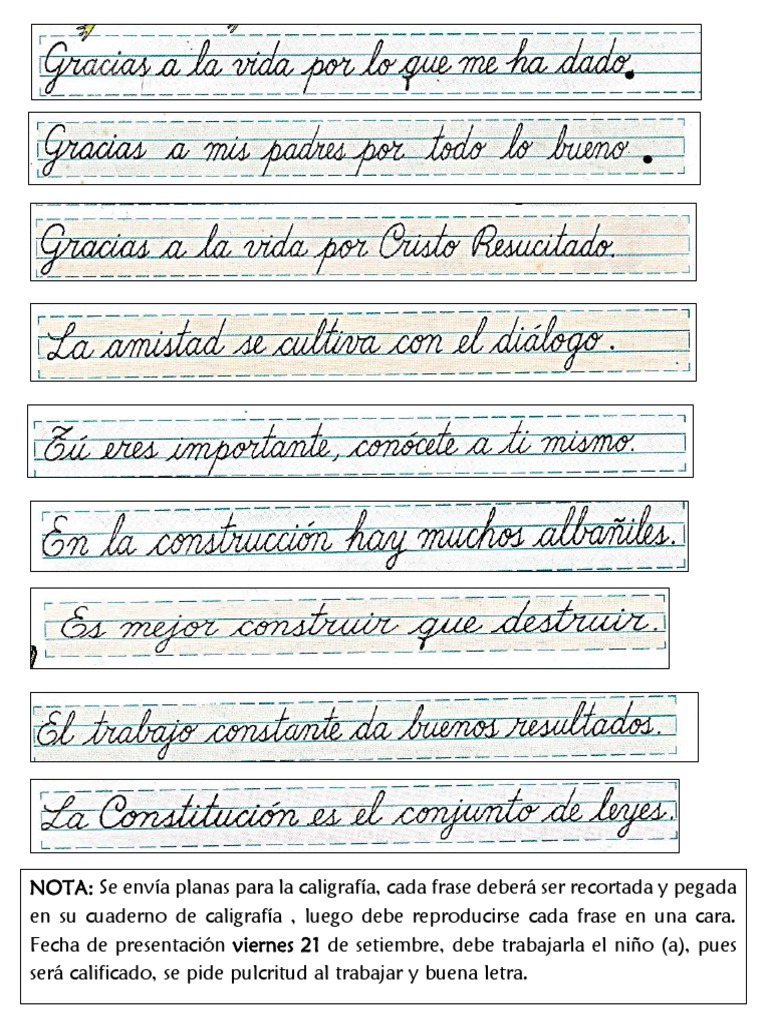 Gracias a la vida por lo que me ha dado.
Gracias a mis padres por todo lo bueno .
Gracias a la vida por Cristo Resucitado.
La amistad se cultiva con el diálogo .
Tú eres importante, conócete a ti mismo.
En la construcción hay muchos albañiles.
Es mejor construir que destruir.
El trabajo constante da buenos resultados.
La Constitución es el conjunto de leyes.
NOTA: Se envía planas para la caligrafía, cada frase deberá ser recortada y pegada
en su cuaderno de caligrafía , luego debe reproducirse cada frase en una cara.
Fecha de presentación viernes 21 de setiembre, debe trabajarla el niño (a), pues
será calificado, se pide pulcritud al trabajar y buena letra.